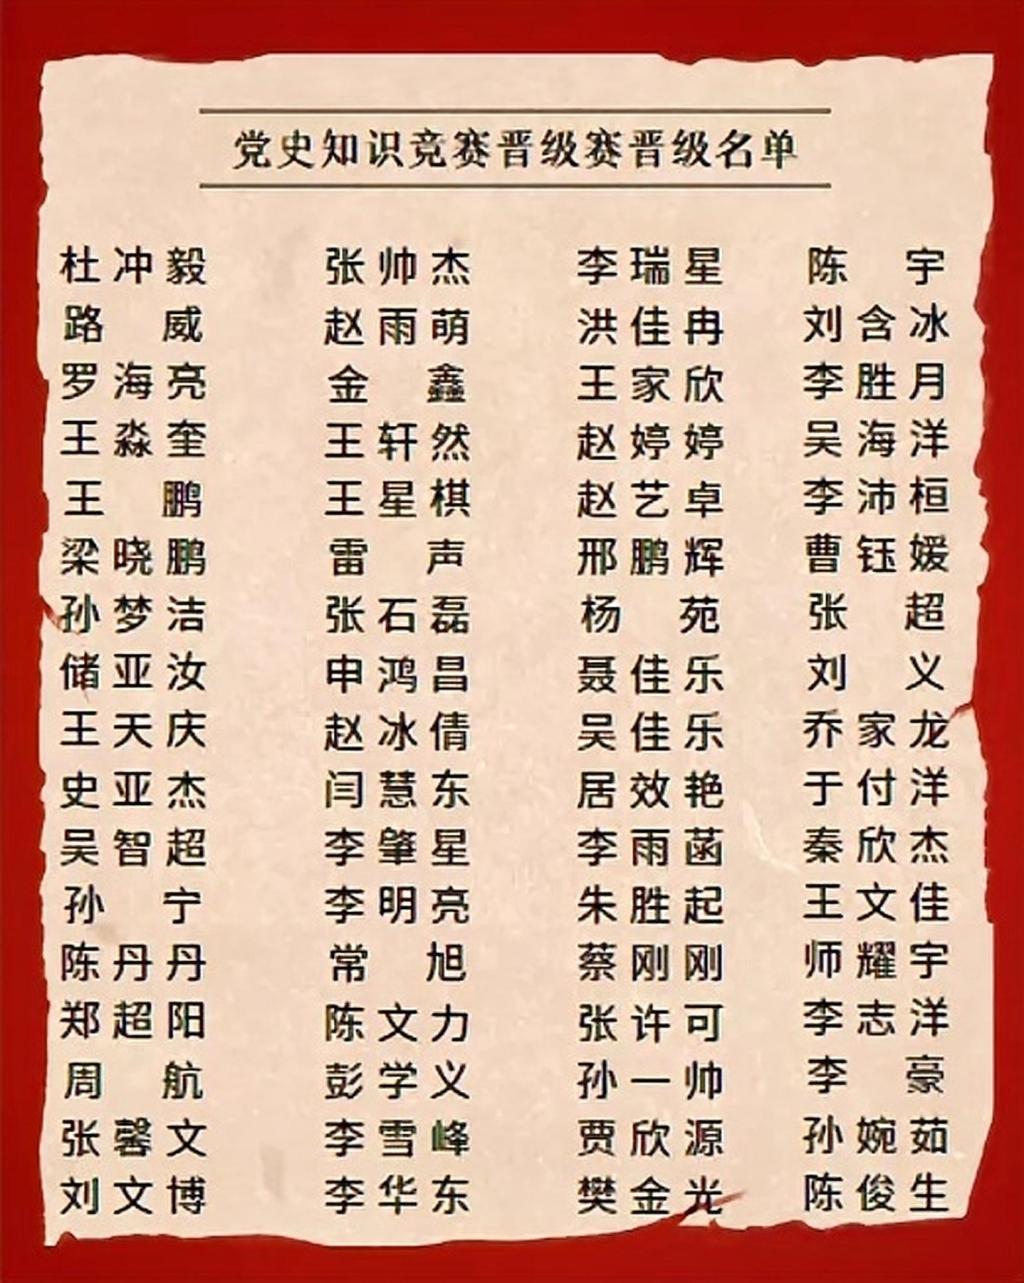 党史知识竞赛晋级赛晋级名单
杜冲毅 张帅杰 李瑞星 陈宇
路威 赵雨萌 洪佳冉 刘含冰
罗海亮 金鑫 王家欣 李胜月
王淼奎 王轩然 赵婷婷 吴海洋
王鹏 王星棋 赵艺卓 李沛桓
梁晓鹏 雷声 邢鹏辉 曹钰媛
孙梦洁 张石磊 杨苑 张超
储亚汝 申鸿昌 聂佳乐 刘义
王天庆 赵冰倩 吴佳乐 乔家龙
史亚杰 闫慧东 居效艳 于付洋
吴智超 李肇星 李雨菡 秦欣杰
孙宁 李明亮 朱胜起 王文佳
陈丹丹 常旭 蔡刚刚 师耀宇
郑超阳 陈文力 张许可 李志洋
周航 彭学义 孙一帅 李豪
张馨文 李雪峰 贾欣源 孙婉茹
刘文博 李华东 樊金光 陈俊生